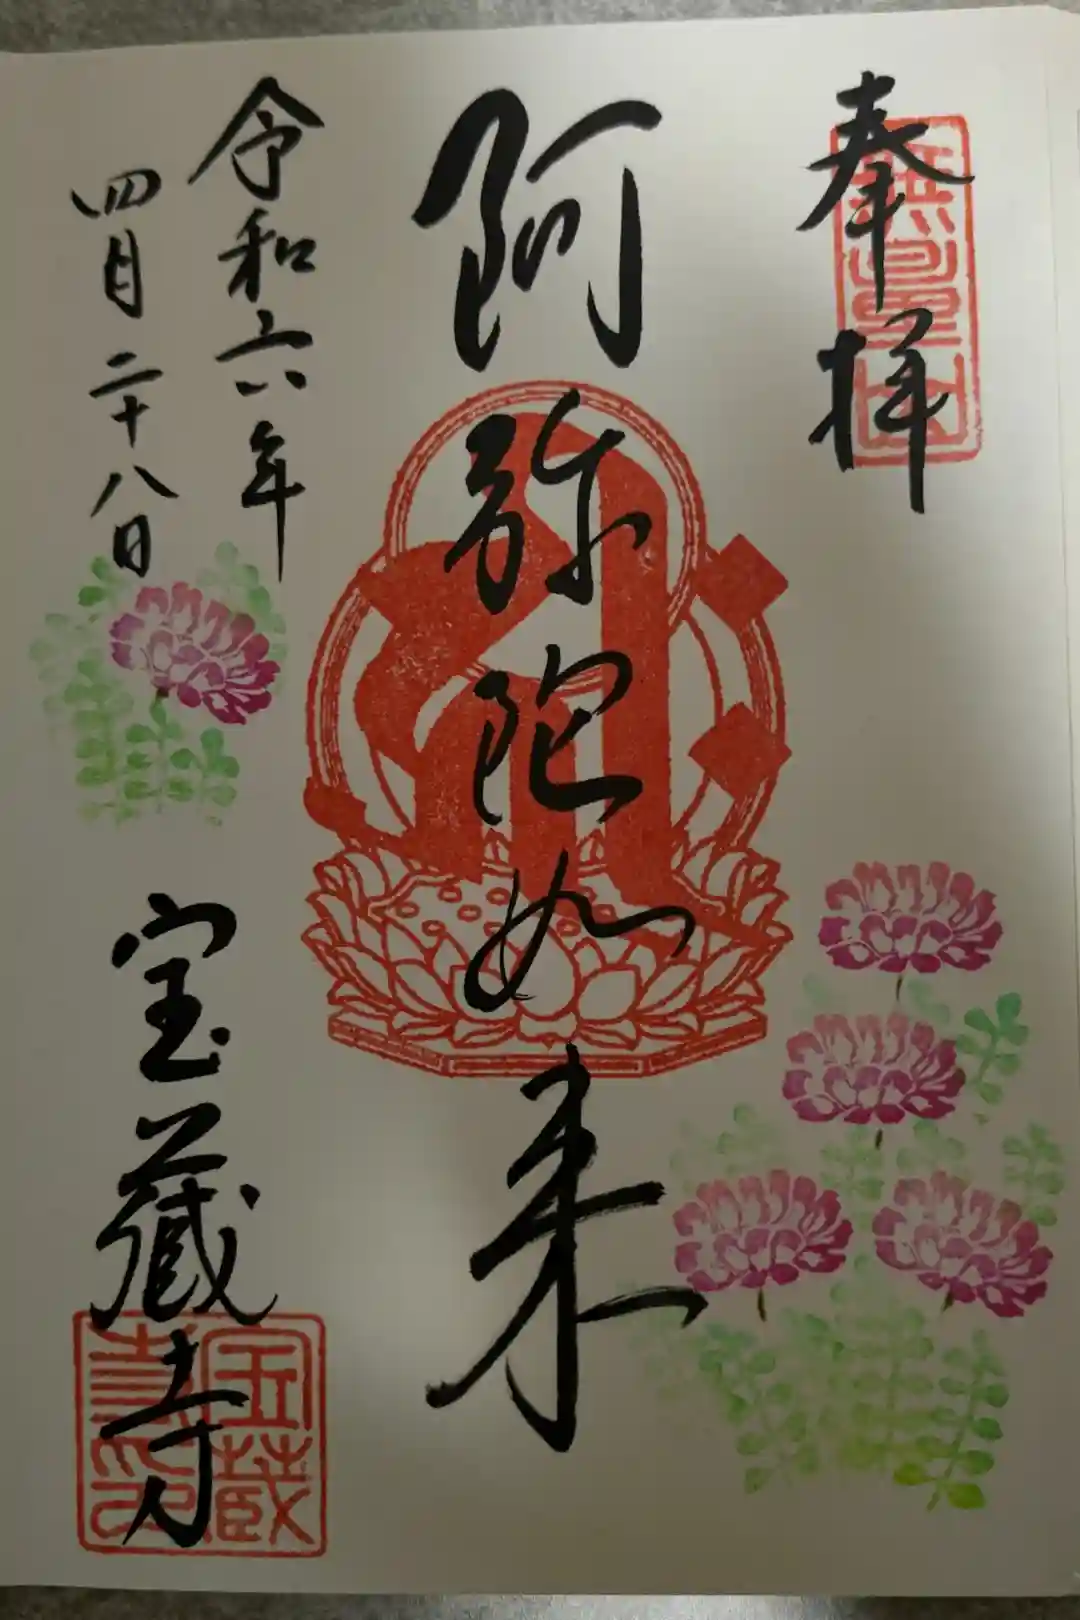 奉拝
阿弥陀如来
令和六年
四月二十八日
宝蔵寺